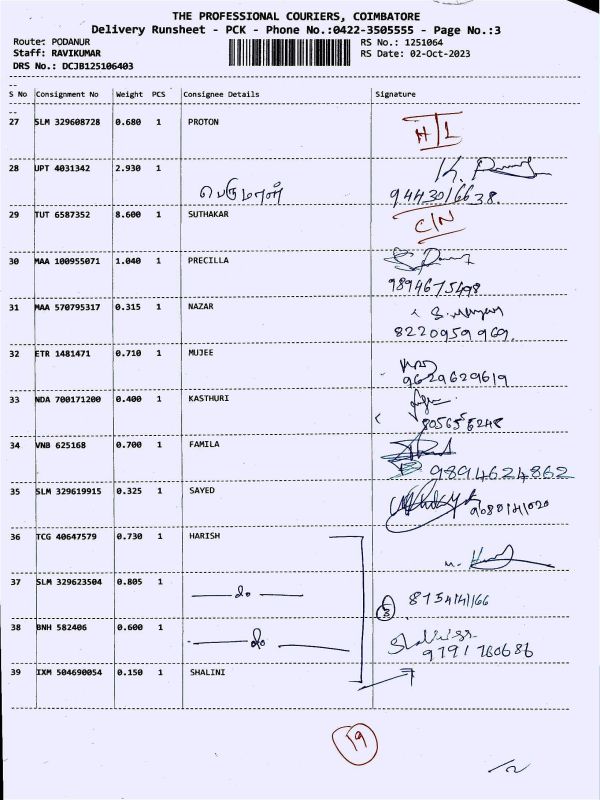 THE PROFESSIONAL COURIERS, COIMBATORE
Delivery Runsheet - PCK - Phone No.:0422-3505555 - Page No.:3
Route: PODANUR RS No.: 1251064
Staff: RAVIKUMAR RS Date: 02-Oct-2023
DRS No.: DCJB125106403
S No Consignment No Weight PCS Consignee Details Signature
27 SLM 329608728 0.680 1 PROTON
28 UPT 4031342 2.930 1
பெருமாள் 9443016638.
29 TUT 6587352 8.600 1 SUTHAKAR C/N
30 MAA 100955071 1.040 1 PRECILLA
9894675498
31 MAA 570795317 0.315 1 NAZAR
8220959969.
32 ETR 1481471 0.710 1 MUJEE
9629629619
33 NDA 700171200 0.400 1 KASTHURI
34 VNB 625168 0.700 1 FAMILA
9894624862
35 SLM 329619915 0.325 1 SAYED
36 TCG 40647579 0.730 1 HARISH
37 SLM 329623504 0.805 1 do
8754141166
38 BNH 582406 0.600 1 do
9791760686
39 IXM 504690054 0.150 1 SHALINI
19